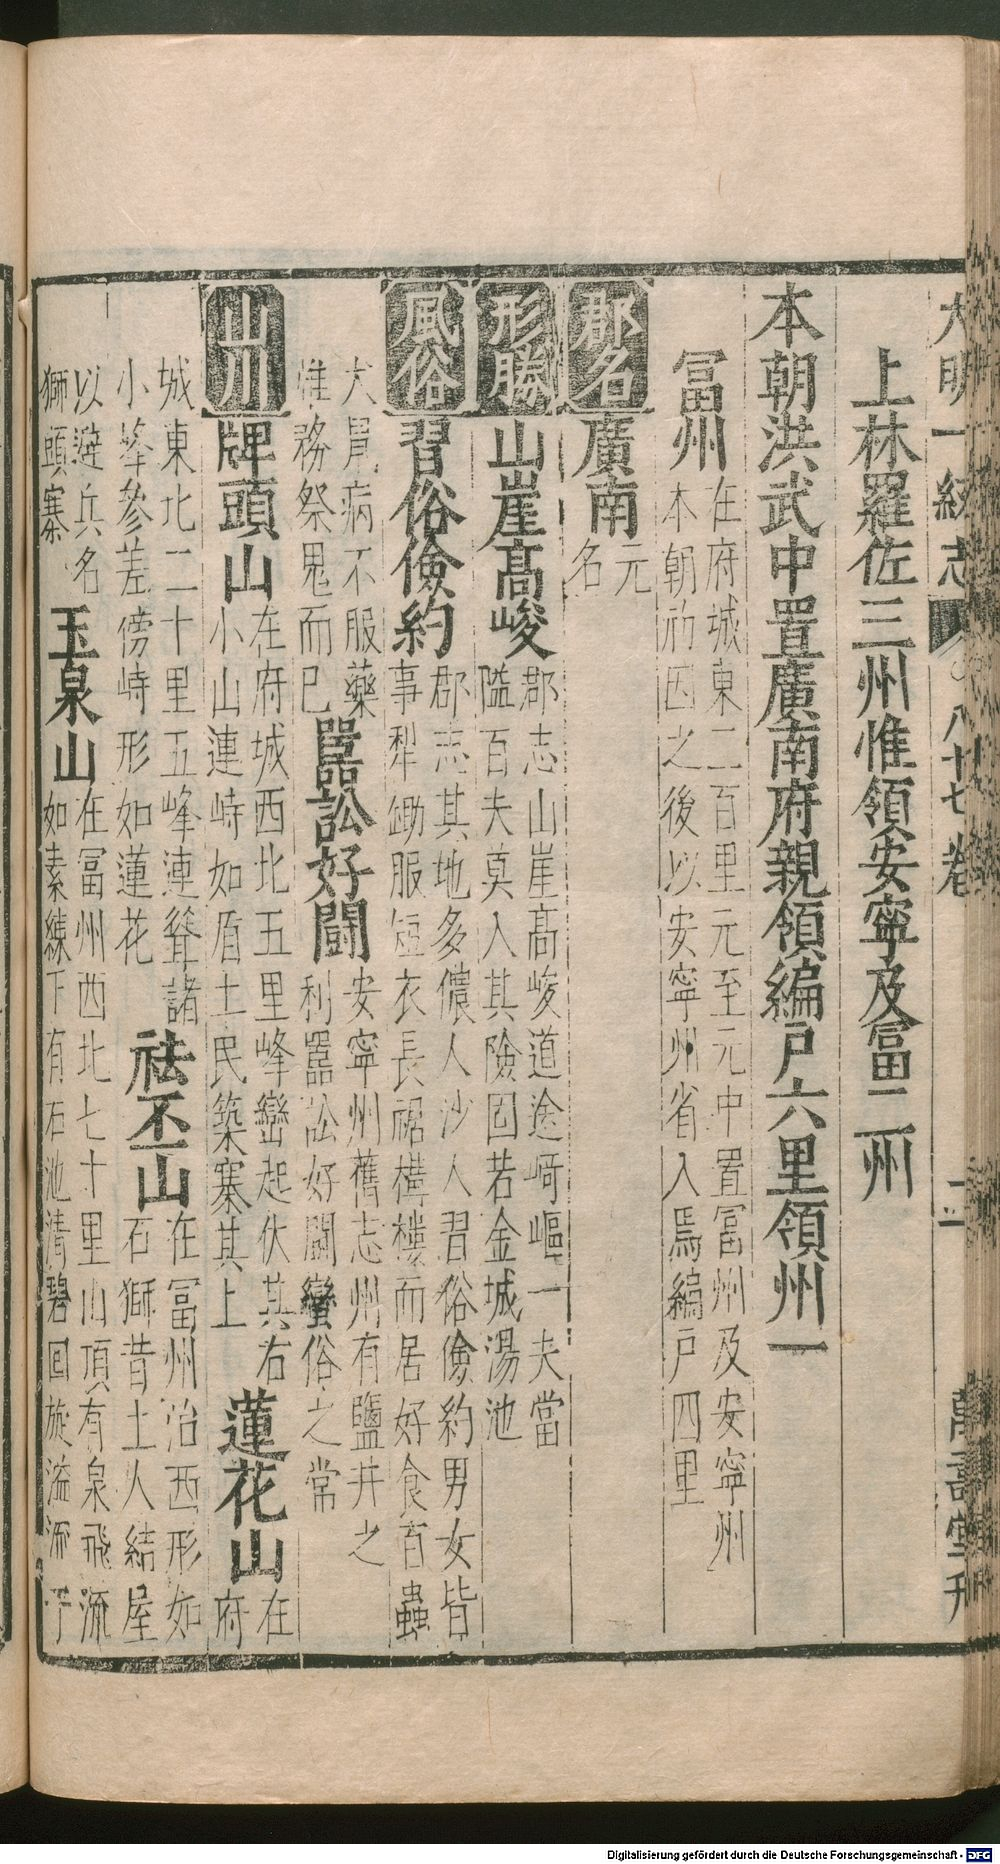 大明一統志 八十七卷 二 萬壽堂刊
上林羅佐三州惟領安寧及冨二州
本朝洪武中置廣南府親領編戶六里領州一
冨州
在府城東二百里元至元中置冨州及安寧州
本朝初因之後以安寧州省入焉編戶四里
郡名
廣南
元
名
形勝
山崖髙峻
郡志山崖髙峻道途崎嶇一夫當
隘百夫莫入其險固若金城湯池
風俗
習俗儉約
郡志其地多儂人沙人習俗儉約男女皆
事犁鋤服短衣長裙構樓而居好食百蟲
犬鼠病不服藥
惟務祭鬼而已
嚚訟好鬪
安寧州舊志州有鹽井之
利嚚訟好鬪蠻俗之常
山川
牌頭山
在府城西北五里峰巒起伏其右
小山連峙如盾土民築寨其上
蓮花山
在
府
城東北二十里五峰連聳諸
小峰參差傍峙形如蓮花
祛丕山
在冨州治西形如
石獅昔土人結屋
以避兵名
獅頭寨
玉泉山
在冨州西北七十里山頂有泉飛流
如素練下有石池清碧回旋溢流于
Digitalisierung gefördert durch die Deutsche Forschungsgemeinschaft - DFG